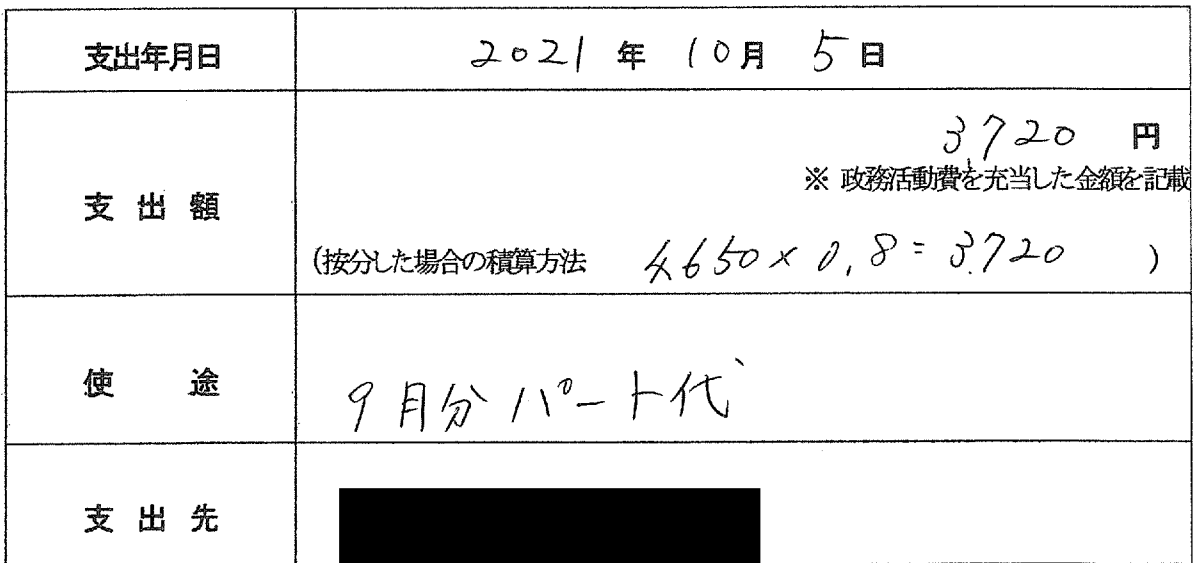 支出年月日 2021 年 10月 5日
3,720 円
※ 政務活動費を充当した金額を記載
支出額
(按分した場合の積算方法 4650×0.8=3,720 )
使途 9月分パート代
支出先